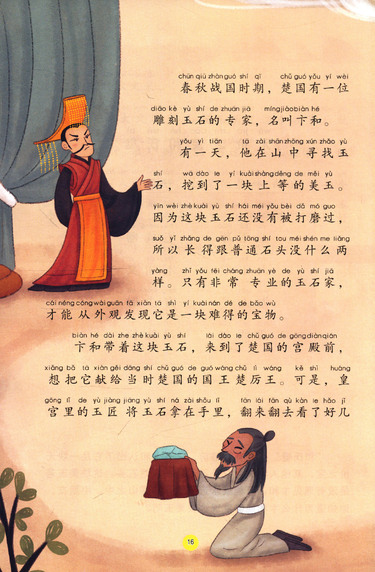 chūn qiū zhàn guó shí qī chǔ guó yǒu yí wèi
春秋战国时期，楚国有一位
diāo kè yù shí de zhuān jiā míng jiào biàn hé
雕刻玉石的专家，名叫卞和。
yǒu yì tiān tā zài shān zhōng xún zhǎo yù
有一天，他在山中寻找玉
shí wā dào le yí kuài shàng děng de měi yù
石，挖到了一块上等的美玉。
yīn wèi zhè kuài yù shí hái méi yǒu bèi dǎ mó guo
因为这块玉石还没有被打磨过，
suǒ yǐ zhǎng de gēn pǔ tōng shí tou méi shén me liǎng
所以长得跟普通石头没什么两
yàng zhǐ yǒu fēi cháng zhuān yè de yù shí jiā
样。只有非常专业的玉石家，
cái néng cóng wài guān fā xiàn tā shì yí kuài nán dé de bǎo wù
才能从外观发现它是一块难得的宝物。
biàn hé dài zhe zhè kuài yù shí lái dào le chǔ guó de gōng diàn qián
卞和带着这块玉石，来到了楚国的宫殿前，
xiǎng bǎ tā xiàn gěi dāng shí chǔ guó de guó wáng chǔ lì wáng kě shì huáng
想把它献给当时楚国的国王楚厉王。可是，皇
gōng lǐ de yù jiàng jiāng yù shí ná zài shǒu lǐ fān lái fān qù kàn le hǎo jǐ
宫里的玉匠将玉石拿在手里，翻来翻去看了好几
16